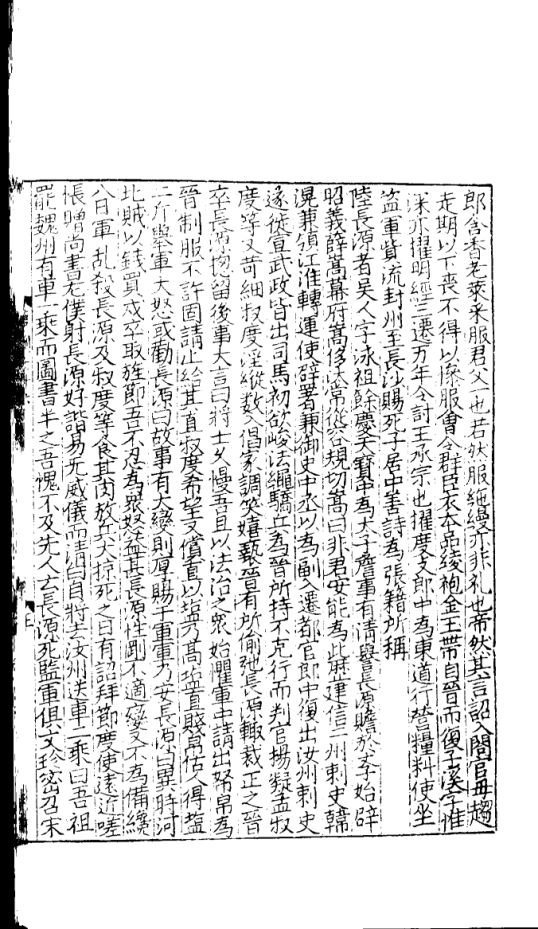 郎含香老萊采服君父一也若然服絁縵亦非礼也帝然其言詔入閤官毋趨
走期以下丧不得以慘服會令群臣衣本品綾袍金玉帶自晉而復子溪字惟
深亦擢明經三遷万年令討王承宗也擢度支郎中為東道行營糧料使坐
盗軍貲流封州至長沙賜死子居中善詩為張籍所稱
陸長源者吴人字泳祖餘慶天寳中為太子詹事有清譽長源贍於斈始辟
昭義薛嵩幕府嵩侈汰常從容規切嵩曰非君安能為此歷建信二州刺史韓
滉兼領江淮轉運使辟署兼御史中丞以為副入遷都官郎中復出汝州刺史
遂徙宣武政皆出司馬初欲峻法繩驕兵為晉所持不克行而判官楊凝孟叔
度等又苛細叔度淫縱數入倡家調笑嬉䙝晉有所偷弛長源輒裁正之晉
卒長源揔留後事大言曰將士久慢吾且以法治之衆始懼軍中請出帑帛為
晉制服不許固請止給其直叔度希望又償直以塩乃髙塩直賤帛估人得塩
二斤舉軍大怒或勸長源曰故事有大變則厚賜于軍軍乃安長源曰異時河
北賊以錢買戍卒取旌節吾不忍為衆怒益甚長源性剛不適變又不為備纔
八日軍乱殺長源及叔度等食其肉放兵大掠死之日有詔拜節度使遠近嗟
悵贈尚書右僕射長源好諧易无威儀而清白自將去汝州送車二乗曰吾祖
罷魏州有車一乗而圖書半之吾愧不及先人云長源死監軍俱文珍宻召宋